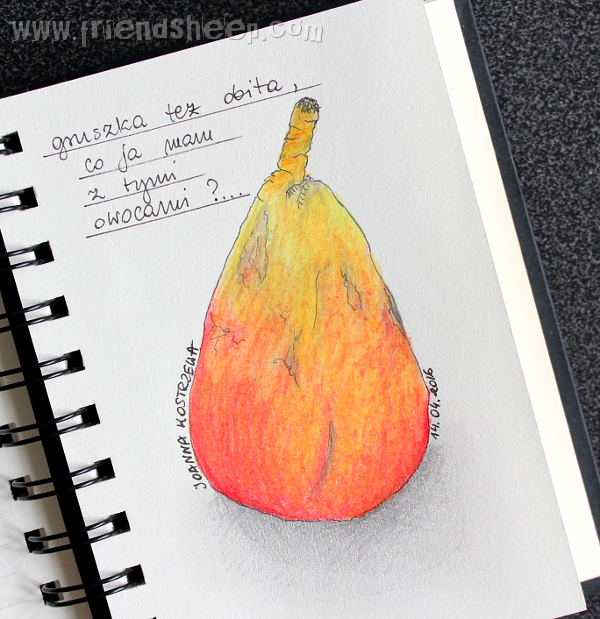 www.friendsheep.com
gruszka też obita,
co ja mam
z tymi
owocami ?...
JOANNA KOSTRZEWA
14.04.2016